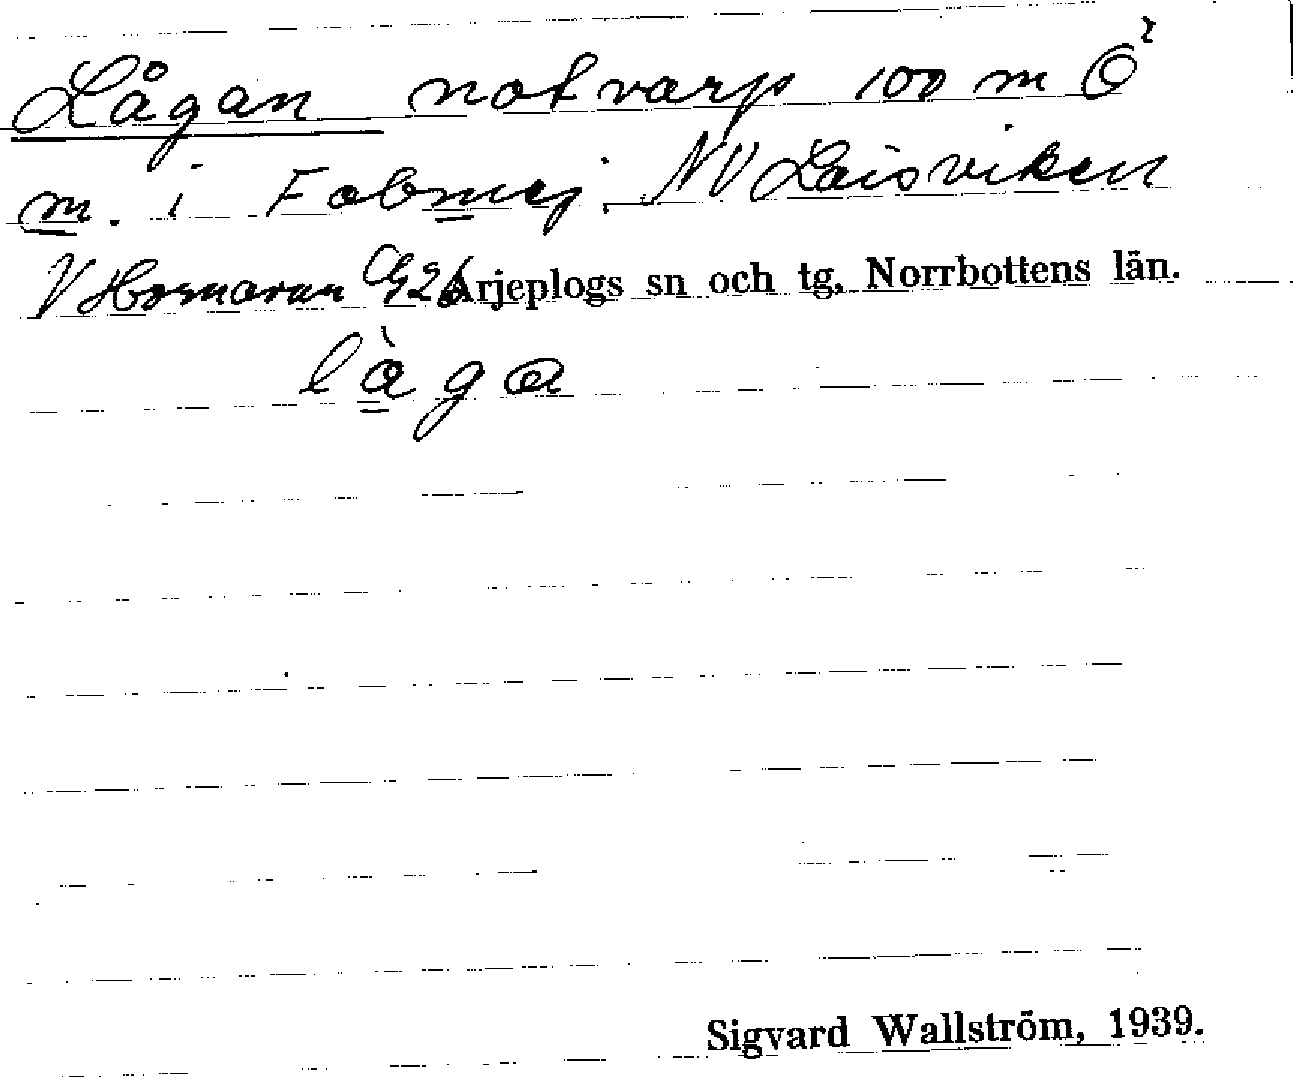 Lågan notvarp 100 m Ö
m. i Fabmej. NV Laisviken
V Hornavan G26 Arjeplogs sn och tg, Norrbottens län.
làga
Sigvard Wallström, 1939.